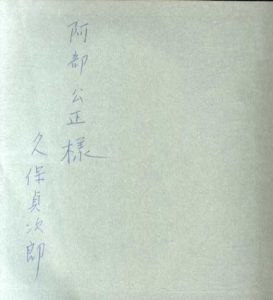 阿部公正様
久保貞次郎